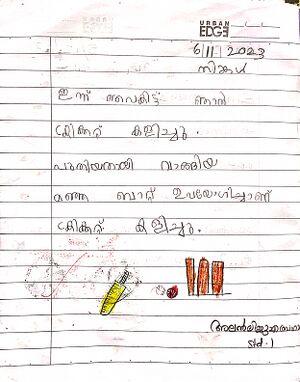 URBAN
EDGE
6/11/2023
തിങ്കൾ
ഇന്ന് വൈകിട്ട് ഞാൻ
ക്രിക്കറ്റ് കളിച്ചു.
പുതിയതായി വാങ്ങിയ
മഞ്ഞ ബാറ്റ് ഉപയോഗിച്ചാണ്
ക്രിക്കറ്റ് കളിച്ചു.
Std. 1